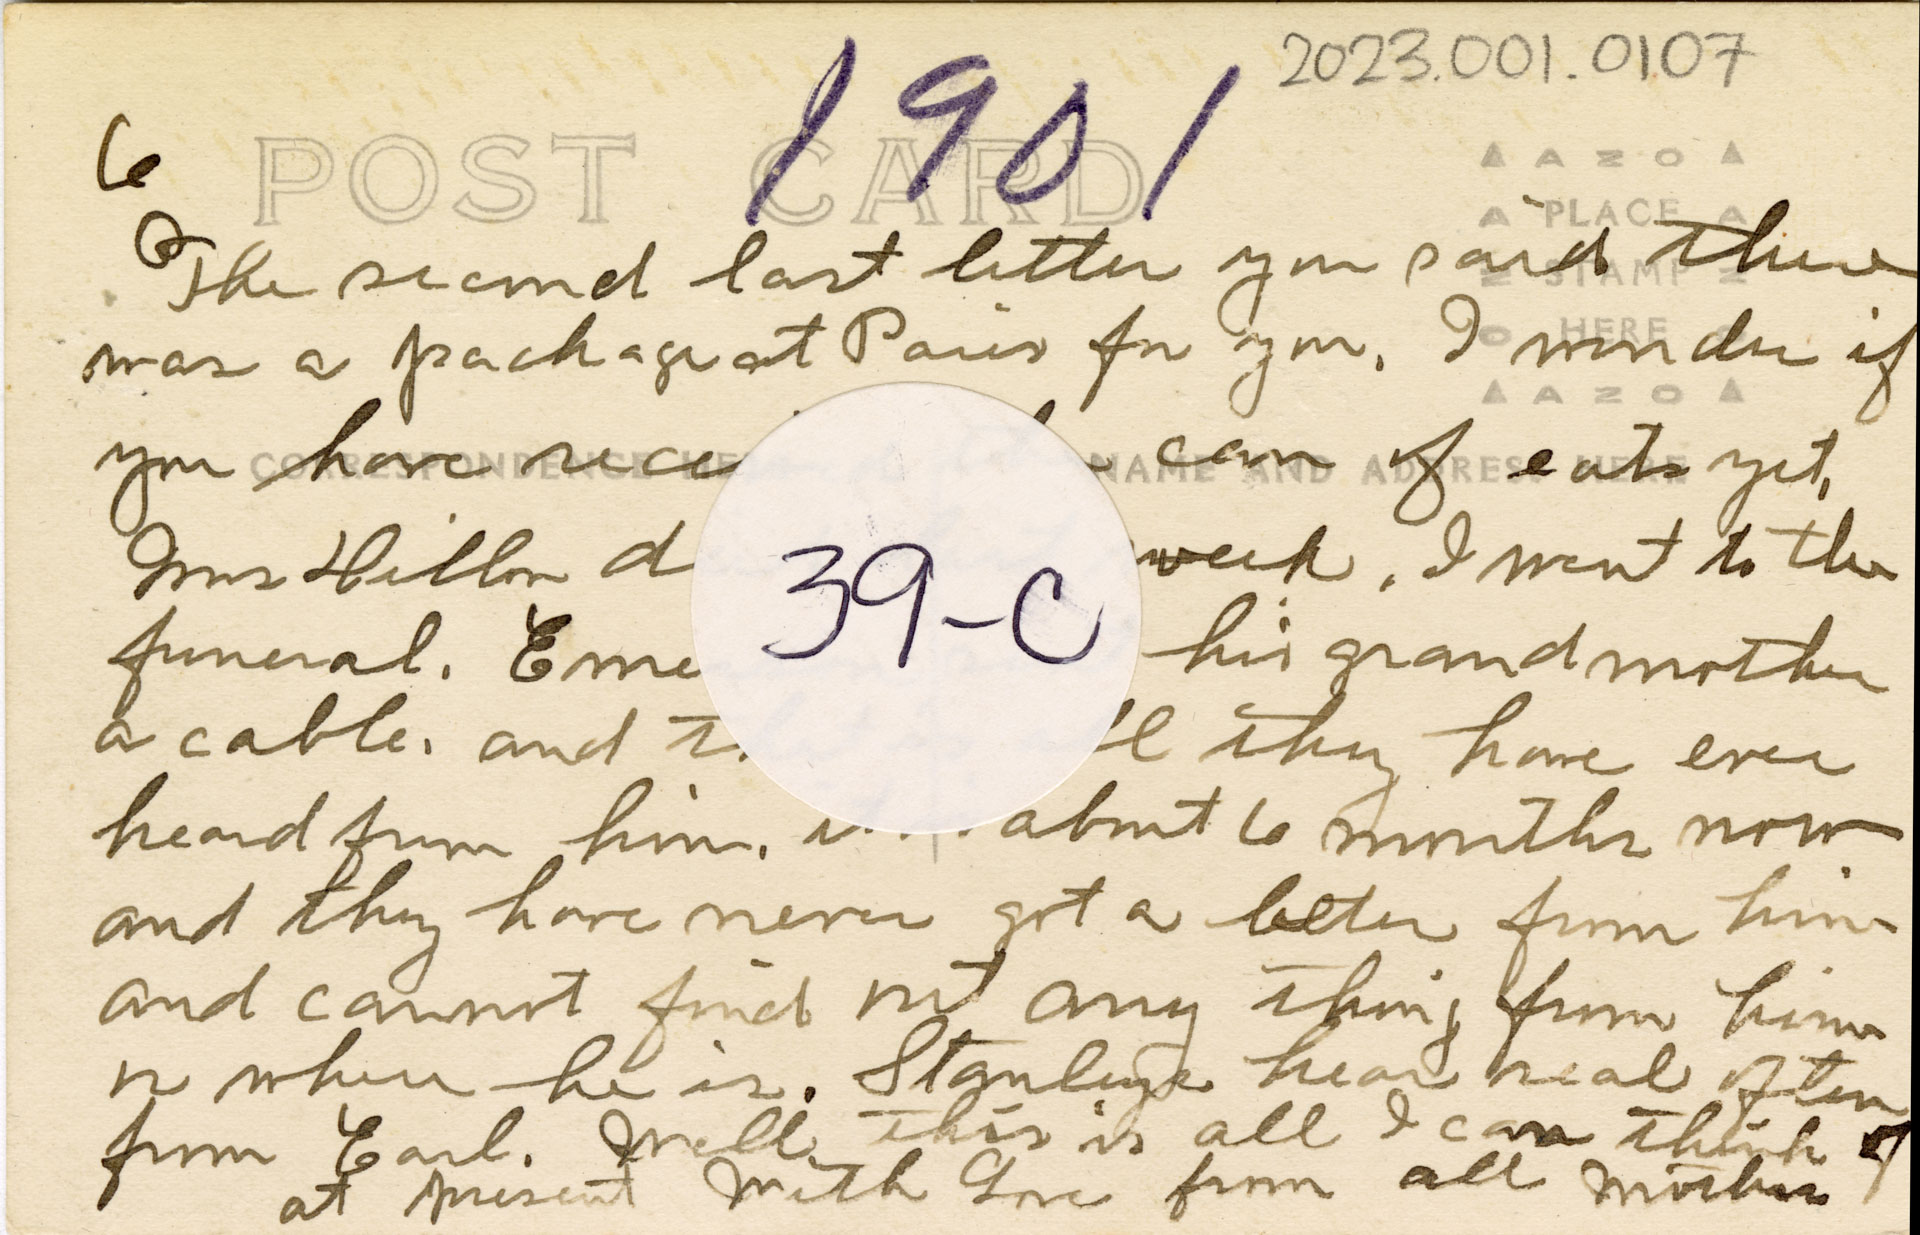 2023.001.0107
1901
6
POST CARD
AZO
PLACE
STAMP
HERE
AZO
The second last letter you said there
was a package at Paris for you. I wonder if
you have rece can of eats yet,
CORRESPONDENCE HE NAME AND ADDRESS HERE
Mrs Dillon d week. I went to the
39-C
funeral. Eme his grandmother
a cable. and t ll they have ever
heard from him. about 6 months now
and they have never got a letter from him
and cannot find out any thing from him
or where he is. Stanleys hear real often
from Earl. Well this is all I can think of
at present With Love from all Mother